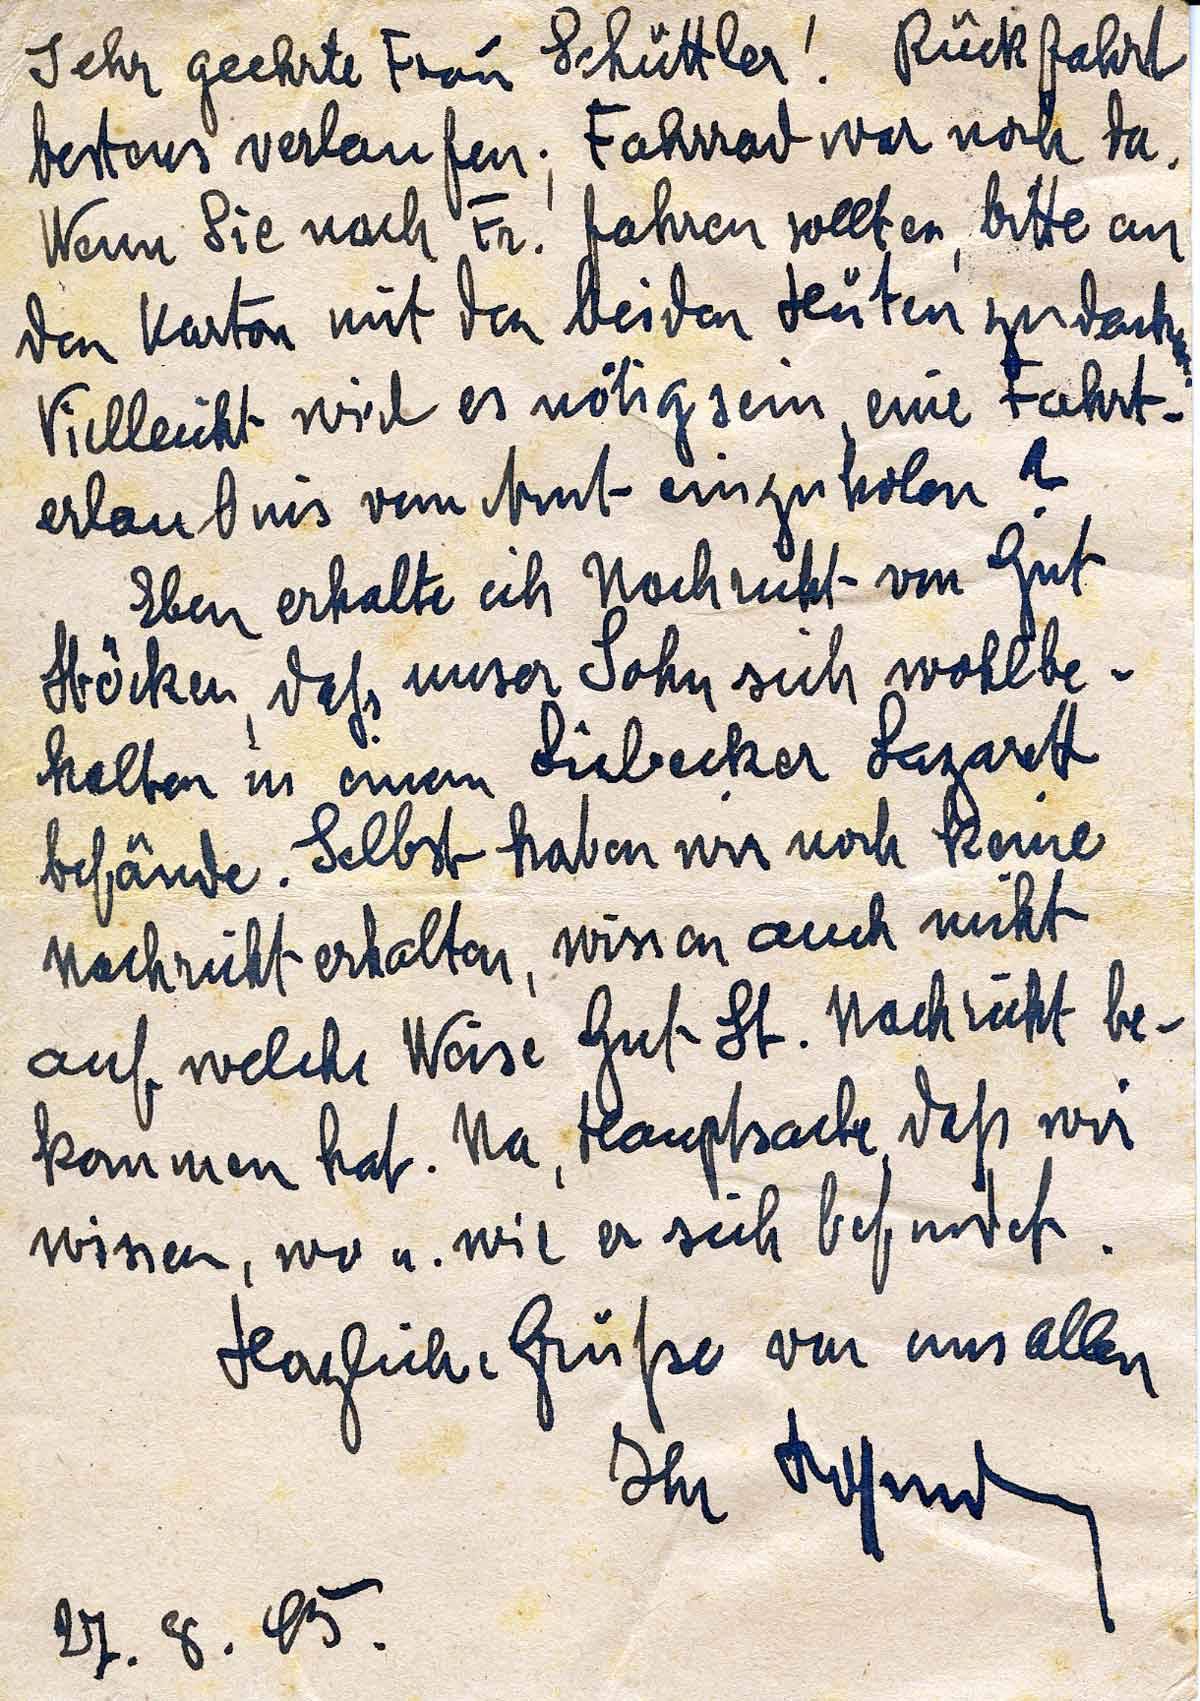 Sehr geehrte Frau Schüttler! Rückfahrt
bestens verlaufen; Fahrrad war noch da.
Wenn Sie nach Fr. fahren sollten, bitte an
den Karton mit den beiden Hüten zu denken.
Vielleicht wird es nötig sein, eine Fahrt-
erlaubnis vom Amt einzuholen?
Eben erhalte ich Nachricht von Gut
Stöcken, daß unser Sohn sich wohlbe-
halten in einem Lübecker Lazarett
befände. Selbst haben wir noch keine
Nachricht erhalten, wissen auch nicht
auf welche Weise Gut St. Nachricht be-
kommen hat. Na, Hauptsache, daß wir
wissen, wo u. wie er sich befindet.
Herzliche Grüße von uns allen
Ihr
27. 8. 45.